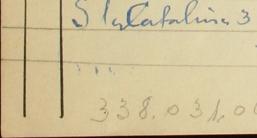 Sta Catalina 3
338.031.0